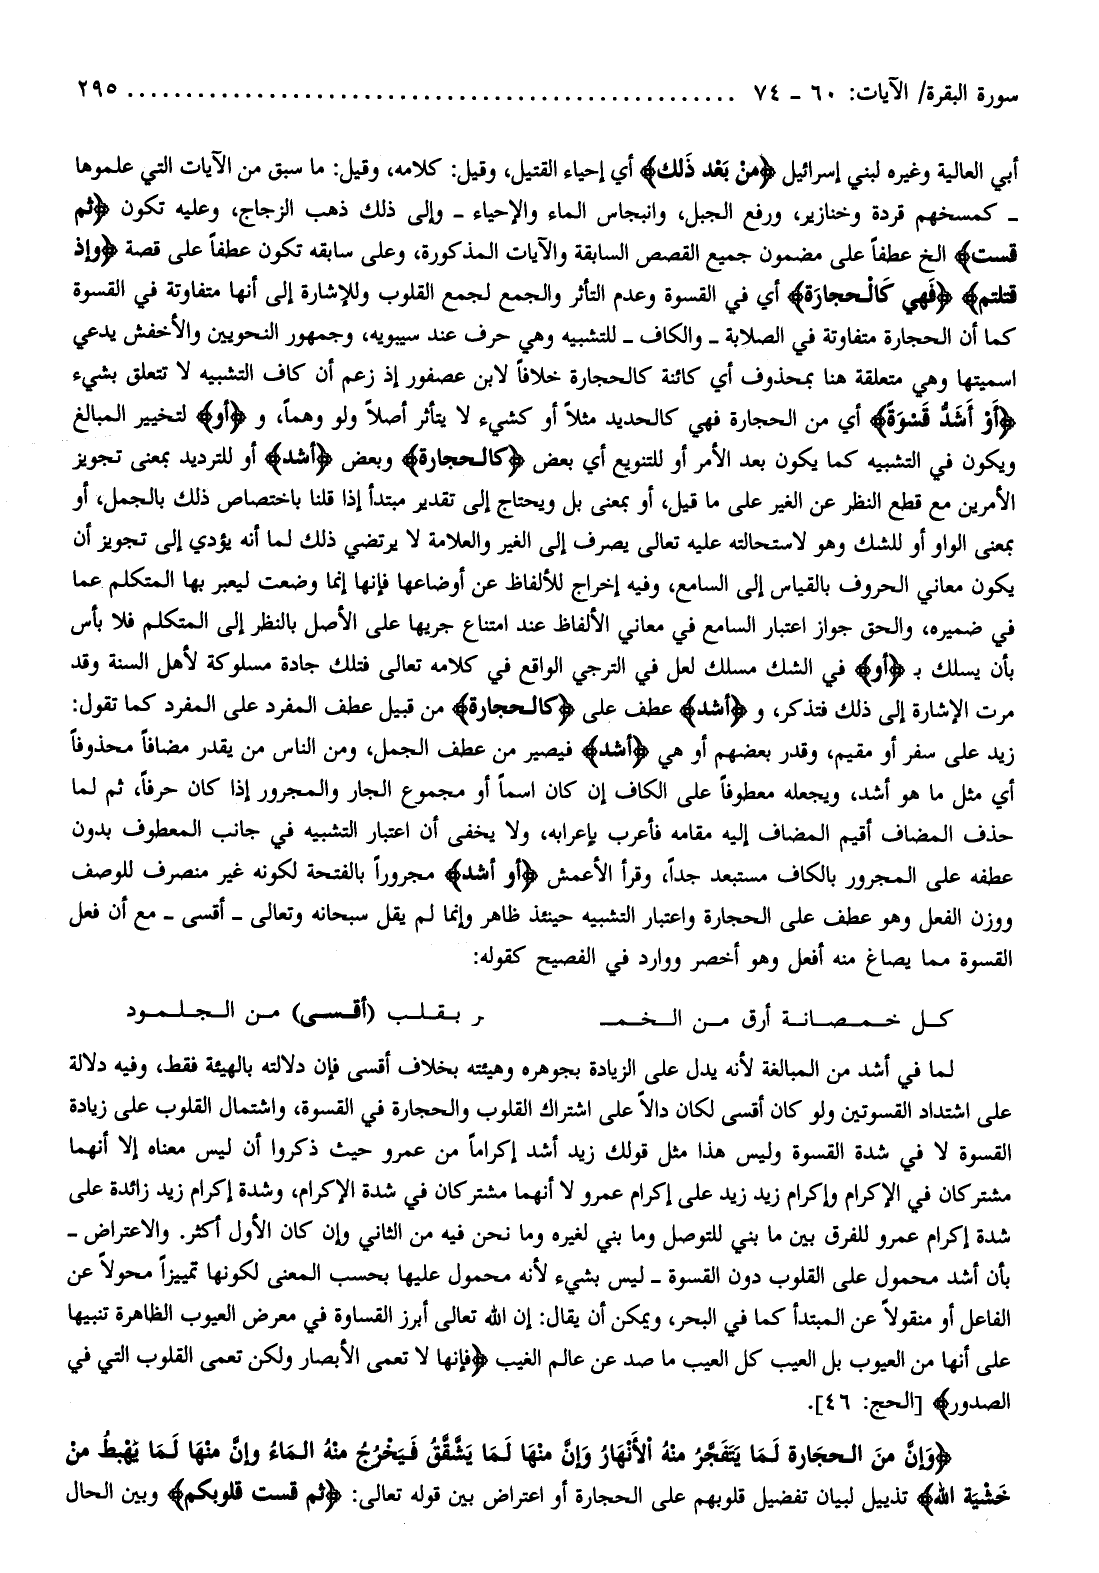 سورة البقرة/ الآيات: ٦٠ ـ ٧٤ ........................................................ ٢٩٥
أبي العالية وغيره لبني إسرائيل ﴿منْ بَعْد ذَلك﴾ أي إحياء القتيل، وقيل: كلامه، وقيل: ما سبق من الآيات التي علموها
ـ كمسخهم قردة وخنازير، ورفع الجبل، وانبجاس الماء والإحياء ـ وإلى ذلك ذهب الزجاج، وعليه تكون ﴿ثم
قست﴾ الخ عطفاً على مضمون جميع القصص السابقة والآيات المذكورة، وعلى سابقه تكون عطفاً على قصة ﴿وإذ
قتلتم﴾ ﴿فَهي كَالْحجارَة﴾ أي في القسوة وعدم التأثر والجمع لجمع القلوب وللإشارة إلى أنها متفاوتة في القسوة
كما أن الحجارة متفاوتة في الصلابة ـ والكاف ـ للتشبيه وهي حرف عند سيبويه، وجمهور النحويين والأخفش يدعي
اسميتها وهي متعلقة هنا بمحذوف أي كائنة كالحجارة خلافاً لابن عصفور إذ زعم أن كاف التشبيه لا تتعلق بشيء
﴿أَوْ أَشَدُّ قَسْوَةً﴾ أي من الحجارة فهي كالحديد مثلاً أو كشيء لا يتأثر أصلاً ولو وهماً، و ﴿أو﴾ لتخيير المبالغ
ويكون في التشبيه كما يكون بعد الأمر أو للتنويع أي بعض ﴿كالحجارة﴾ وبعض ﴿أشد﴾ أو للترديد بمعنى تجويز
الأمرين مع قطع النظر عن الغير على ما قيل، أو بمعنى بل ويحتاج إلى تقدير مبتدأ إذا قلنا باختصاص ذلك بالجمل، أو
بمعنى الواو أو للشك وهو لاستحالته عليه تعالى يصرف إلى الغير والعلامة لا يرتضي ذلك لما أنه يؤدي إلى تجويز أن
يكون معاني الحروف بالقياس إلى السامع، وفيه إخراج للألفاظ عن أوضاعها فإنها إنما وضعت ليعبر بها المتكلم عما
في ضميره، والحق جواز اعتبار السامع في معاني الألفاظ عند امتناع جريها على الأصل بالنظر إلى المتكلم فلا بأس
بأن يسلك بـ ﴿أو﴾ في الشك مسلك لعل في الترجي الواقع في كلامه تعالى فتلك جادة مسلوكة لأهل السنة وقد
مرت الإشارة إلى ذلك فتذكر، و ﴿أشد﴾ عطف على ﴿كالحجارة﴾ من قبيل عطف المفرد على المفرد كما تقول:
زيد على سفر أو مقيم، وقدر بعضهم أو هي ﴿أشد﴾ فيصير من عطف الجمل، ومن الناس من يقدر مضافاً محذوفاً
أي مثل ما هو أشد، ويجعله معطوفاً على الكاف إن كان اسماً أو مجموع الجار والمجرور إذا كان حرفاً، ثم لما
حذف المضاف أقيم المضاف إليه مقامه فأعرب بإعرابه، ولا يخفى أن اعتبار التشبيه في جانب المعطوف بدون
عطفه على المجرور بالكاف مستبعد جداً، وقرأ الأعمش ﴿أو أشد﴾ مجروراً بالفتحة لكونه غير منصرف للوصف
ووزن الفعل وهو عطف على الحجارة واعتبار التشبيه حينئذ ظاهر وإنما لم يقل سبحانه وتعالى ـ أقسى ـ مع أن فعل
القسوة مما يصاغ منه أفعل وهو أخصر ووارد في الفصيح كقوله:
كل خمصانة أرق من الخمـ ر بقلب (أقسى) من الجلمود
لما في أشد من المبالغة لأنه يدل على الزيادة بجوهره وهيئته بخلاف أقسى فإن دلالته بالهيئة فقط، وفيه دلالة
على اشتداد القسوتين ولو كان أقسى لكان دالاً على اشتراك القلوب والحجارة في القسوة، واشتمال القلوب على زيادة
القسوة لا في شدة القسوة وليس هذا مثل قولك زيد أشد إكراماً من عمرو حيث ذكروا أن ليس معناه إلا أنهما
مشتركان في الإكرام وإكرام زيد زيد على إكرام عمرو لا أنهما مشتركان في شدة الإكرام، وشدة إكرام زيد زائدة على
شدة إكرام عمرو للفرق بين ما بني للتوصل وما بني لغيره وما نحن فيه من الثاني وإن كان الأول أكثر. والاعتراض ـ
بأن أشد محمول على القلوب دون القسوة ـ ليس بشيء لأنه محمول عليها بحسب المعنى لكونها تمييزاً محولاً عن
الفاعل أو منقولاً عن المبتدأ كما في البحر، ويمكن أن يقال: إن الله تعالى أبرز القساوة في معرض العيوب الظاهرة تنبيها
على أنها من العيوب بل العيب كل العيب ما صد عن عالم الغيب ﴿فإنها لا تعمى الأبصار ولكن تعمى القلوب التي في
الصدور﴾ [الحج: ٤٦].
﴿وَإنَّ منَ الحجَارة لَمَا يَتَفَجَّرُ منْهُ الْأَنْهَارُ وَإنَّ منْهَا لَمَا يَشَّقَّقُ فَيَخْرُجُ منْهُ المَاءُ وإنَّ منْهَا لَمَا يَهْبطُ منْ
خَشْيَة الله﴾ تذييل لبيان تفضيل قلوبهم على الحجارة أو اعتراض بين قوله تعالى: ﴿ثم قست قلوبكم﴾ وبين الحال